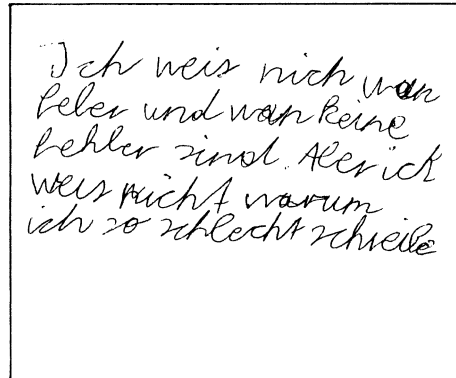 Ich weis nich wan
feler und wan keine
fehler sind. Aler ich
weis nicht warum
ich so schlecht schreibe